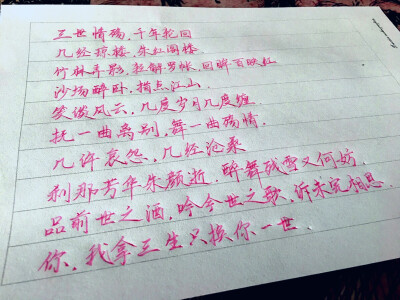 三世情殇，千年轮回
几经琼楼，朱红阁楼
竹林弄影，轻解罗帐，回眸百映红
沙场醉卧，指点江山．
笑谈风云，几度岁月几度缠
抚一曲离别，舞一曲殇情．
几许哀怨，几经沧桑
刹那芳华朱颜逝，醉舞残雪又何妨．
品前世之酒，吟今世之歌，诉未完相思．
你，我拿三生只换你一世．